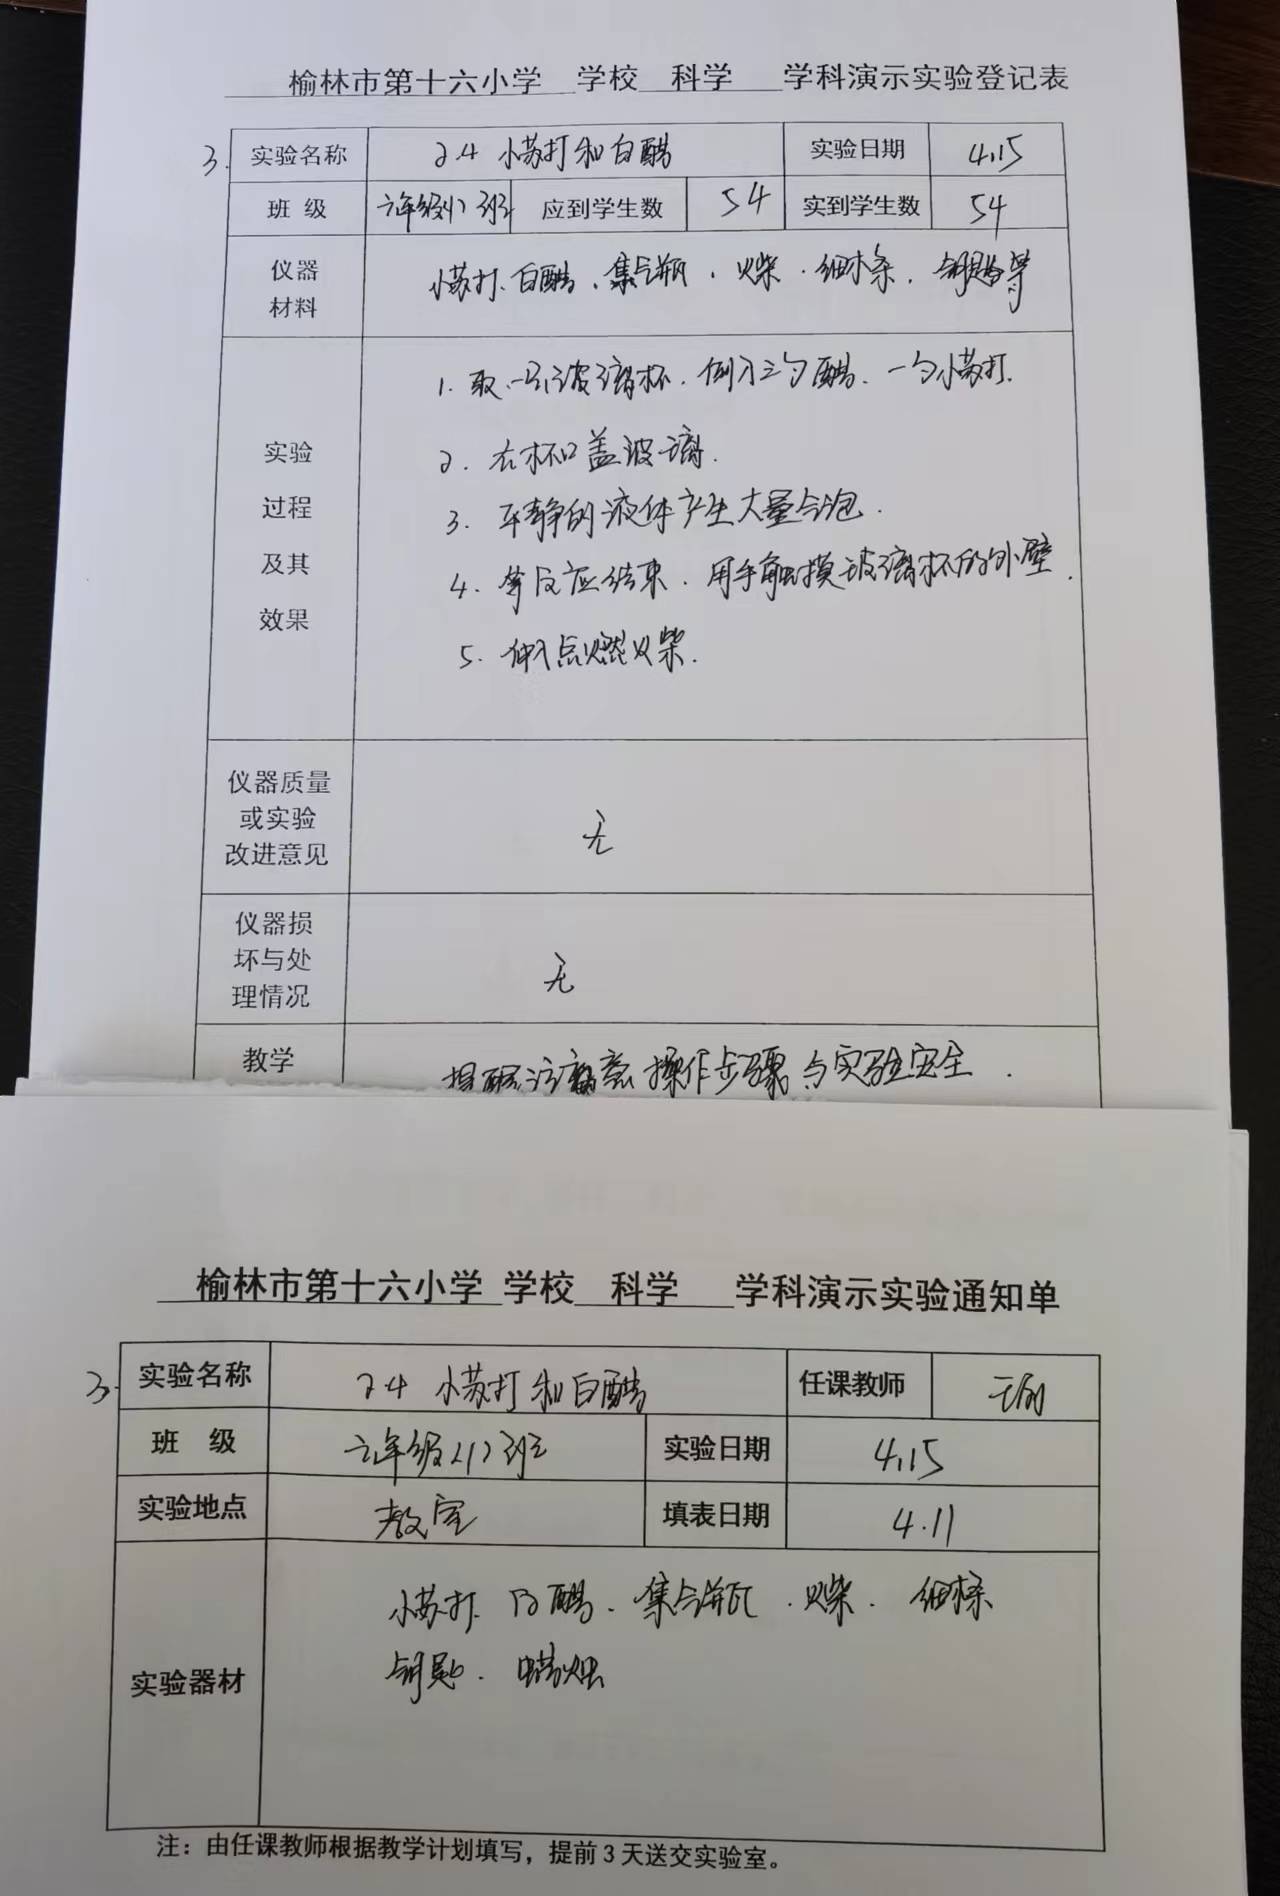 榆林市第十六小学 学校 科学 学科演示实验登记表
3. 实验名称 2.4 小苏打和白醋 实验日期 4.15
班 级 六年级(1)班 应到学生数 54 实到学生数 54
仪器
材料
小苏打、白醋、集气瓶、火柴、细木条、钥匙等
实验
过程
及其
效果
1. 取一只玻璃杯,倒入三勺醋、一勺小苏打.
2. 在杯口盖玻璃.
3. 平静的液体产生大量气泡.
4. 等反应结束,用手触摸玻璃杯的外壁.
5. 伸入点燃火柴.
仪器质量
或实验
改进意见
无
仪器损
坏与处
理情况
无
教学
提醒注意操作步骤与实验安全.
榆林市第十六小学 学校 科学 学科演示实验通知单
3. 实验名称 2.4 小苏打和白醋 任课教师
班 级 六年级(1)班 实验日期 4.15
实验地点 教室 填表日期 4.11
实验器材
小苏打、白醋、集气瓶、火柴、细木条
钥匙、蜡烛
注:由任课教师根据教学计划填写,提前3天送交实验室。